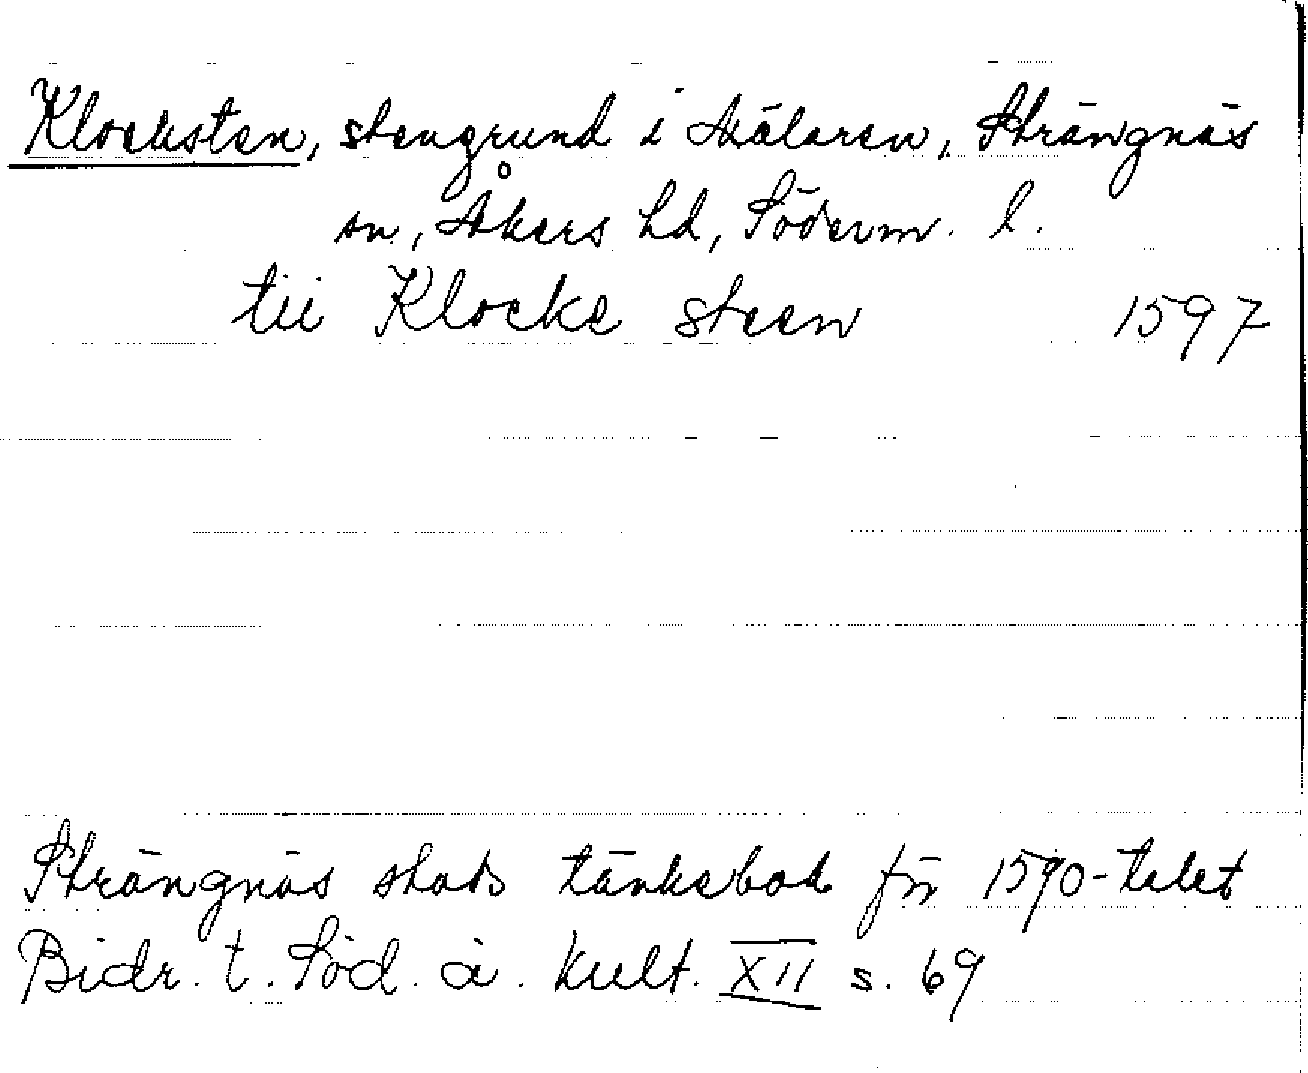 Klocksten, stengrund i Mälaren, Strängnäs
sn, Åkers hd, Söderm. l.
tii Klocke steen 1597
Strängnäs stads tänkebok för 1590-talet
Bidr. t. Söd. ä. kult. XII s. 69